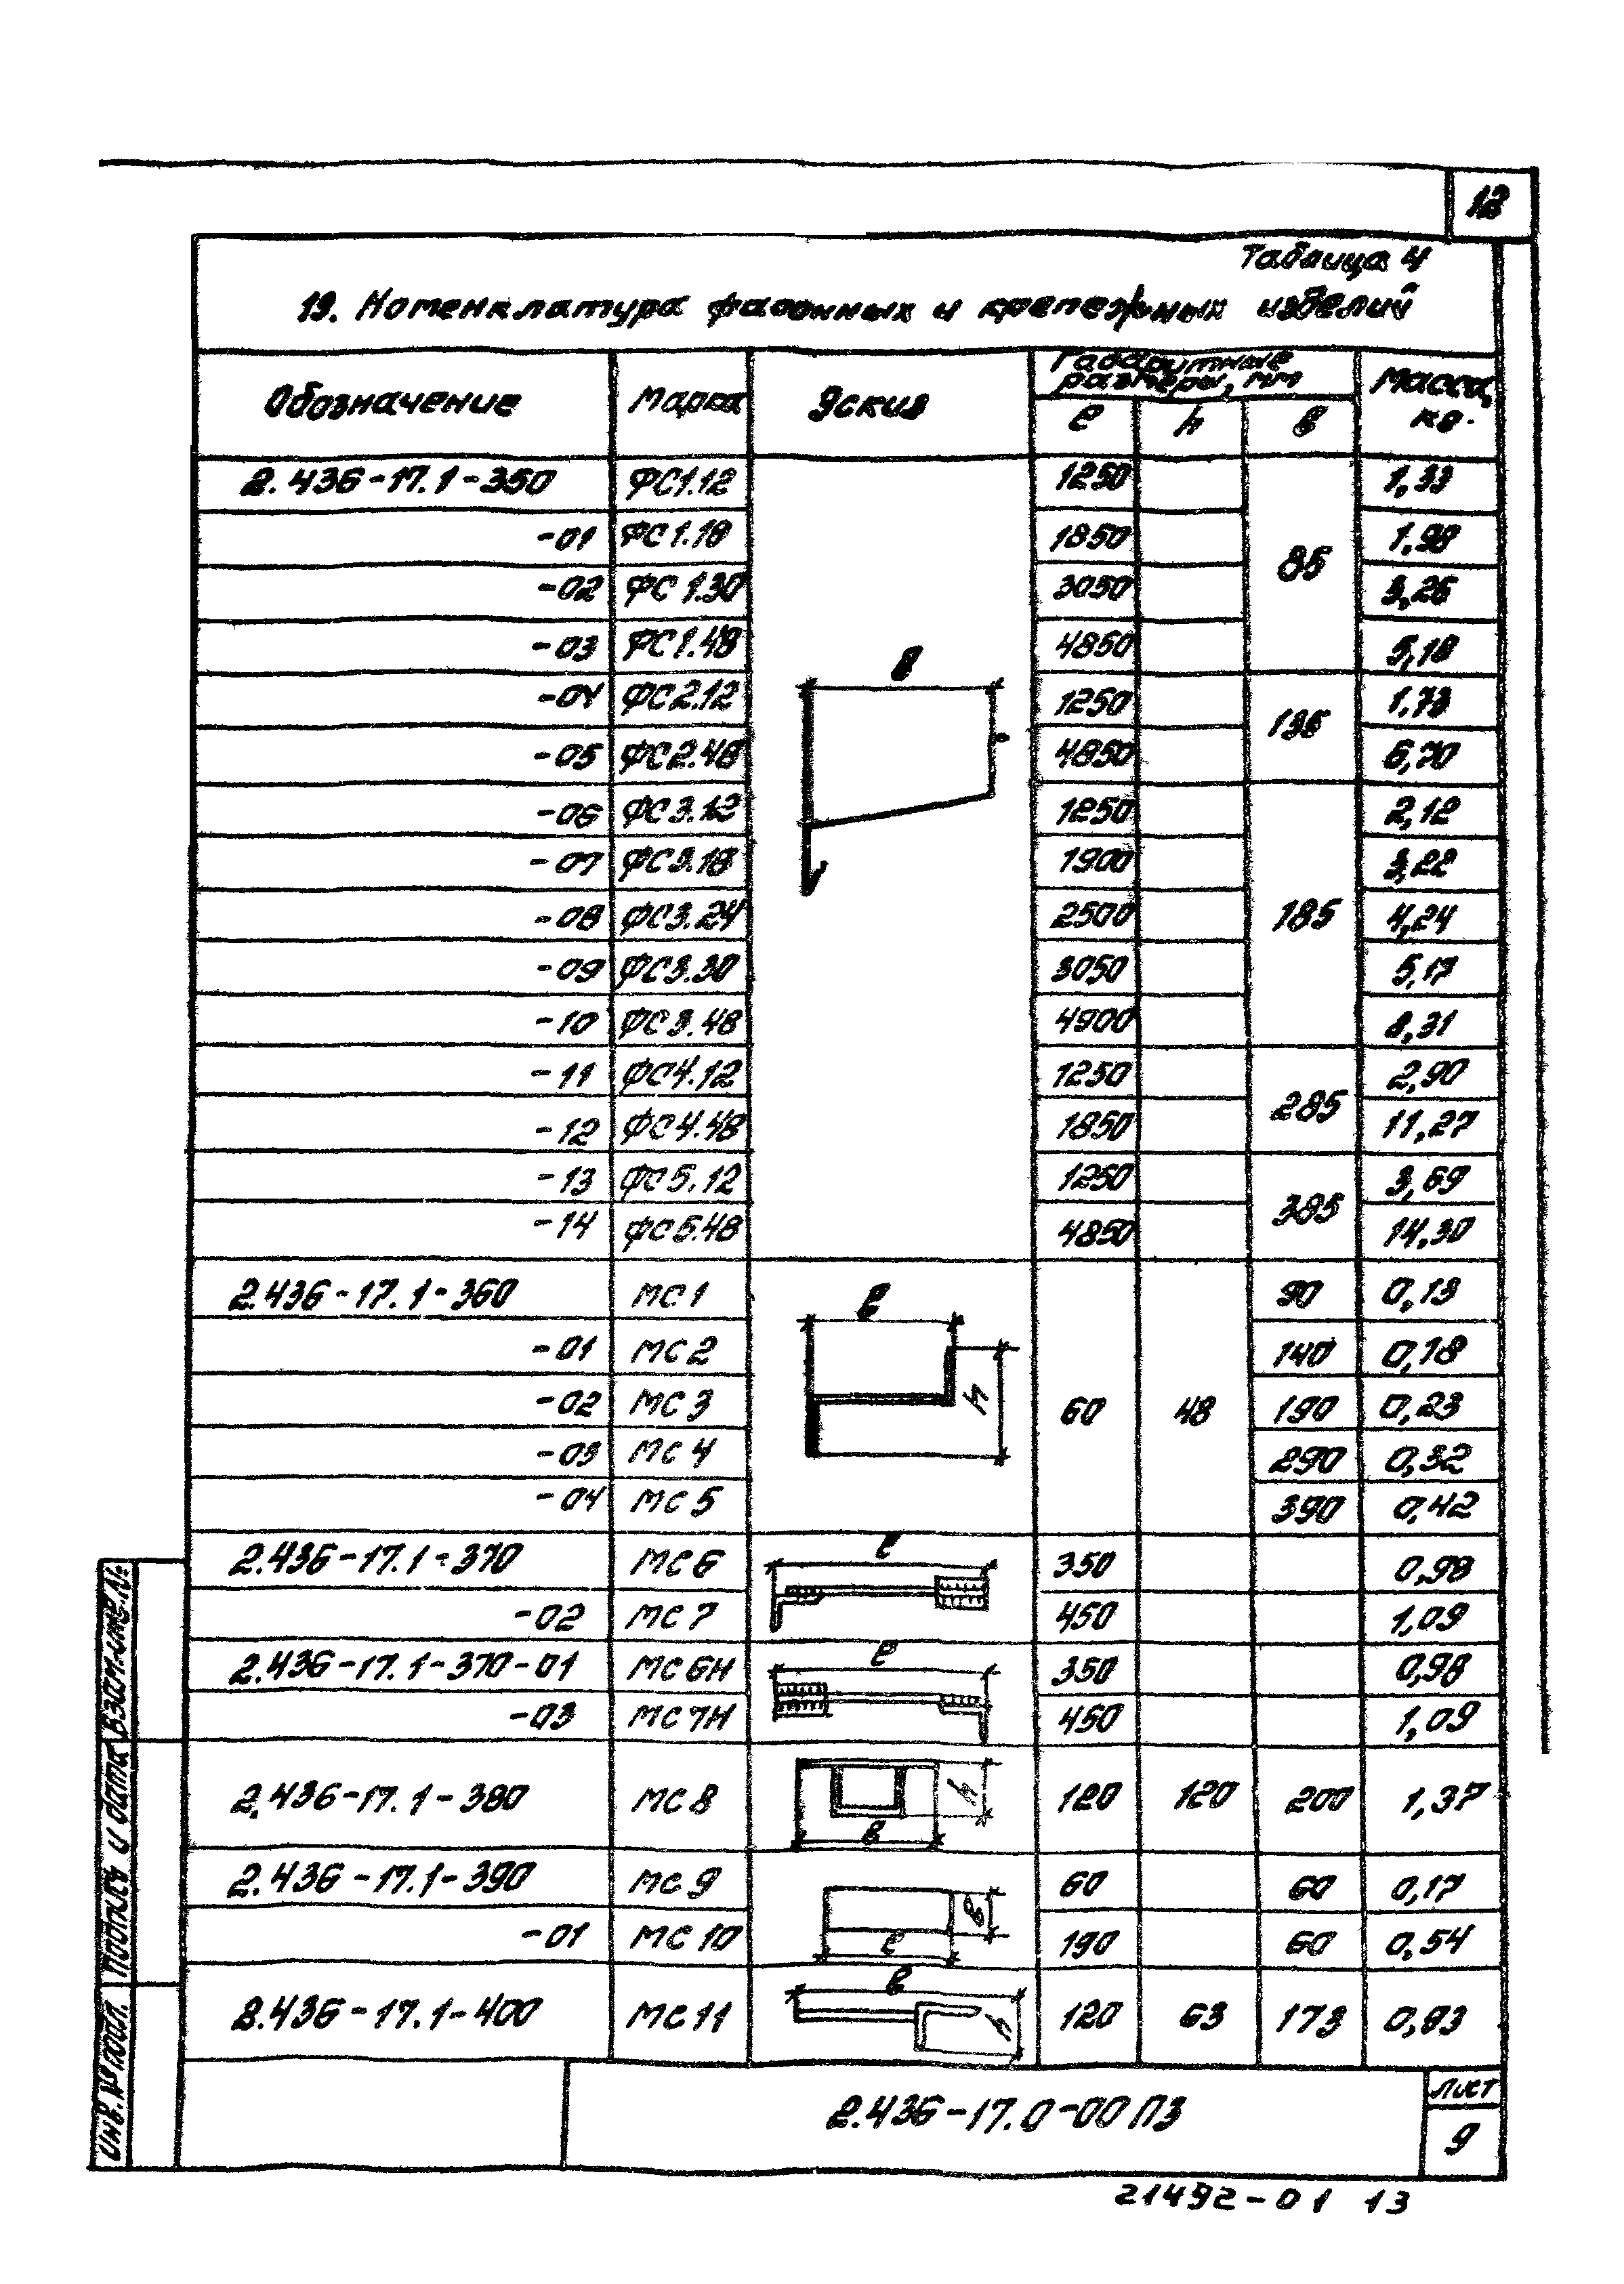 12
Таблица 4
19. Номенклатура фасонных и крепежных изделий
Обозначение Марка Эскиз Габаритные размеры, мм Масса, кг.
ℓ h в
2.436-17.1-350 ФС1.12 1250 85 1,33
-01 ФС1.18 1850 1,98
-02 ФС1.30 3050 3,26
-03 ФС1.48 4850 5,18
-04 ФС2.12 1250 135 1,73
-05 ФС2.48 4850 6,70
-06 ФС3.12 1250 185 2,12
-07 ФС3.18 1900 3,22
-08 ФС3.24 2500 4,24
-09 ФС3.30 3050 5,17
-10 ФС3.48 4900 8,31
-11 ФС4.12 1250 285 2,90
-12 ФС4.48 1850 11,27
-13 ФС5.12 1250 385 3,69
-14 ФС5.48 4850 14,30
в
2.436-17.1-360 МС1 60 48 90 0,13
-01 МС2 140 0,18
-02 МС3 190 0,23
-03 МС4 290 0,32
-04 МС5 390 0,42
h
2.436-17.1-370 МС6 ℓ 350 0,98
-02 МС7 450 1,09
2.436-17.1-370-01 МС6Н ℓ 350 0,98
-03 МС7Н 450 1,09
2.436-17.1-380 МС8 h в 120 120 200 1,37
2.436-17.1-390 МС9 в 60 60 0,17
-01 МС10 ℓ 190 60 0,54
2.436-17.1-400 МС11 в h 120 63 173 0,83
Инв.№подл. Подпись и дата Взам.инв.№
2.436-17.0-00 ПЗ
Лист
9
21492-01 13